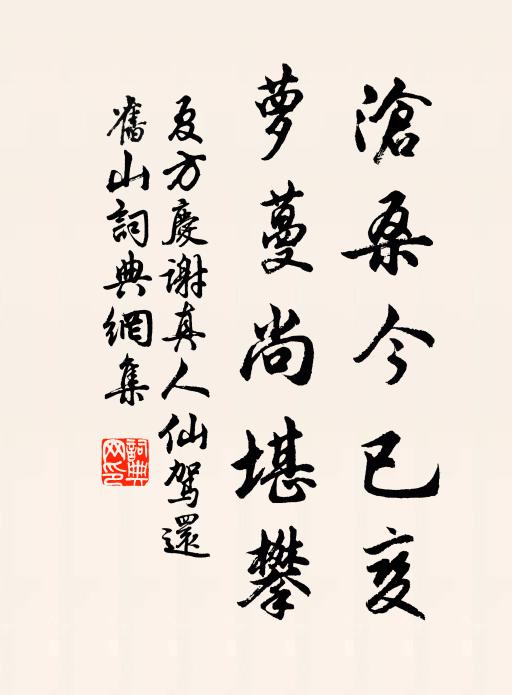 滄桑今已變
蘿蔓尚堪攀
夏方慶謝真人仙駕還
舊山詞典網集
詞典网印